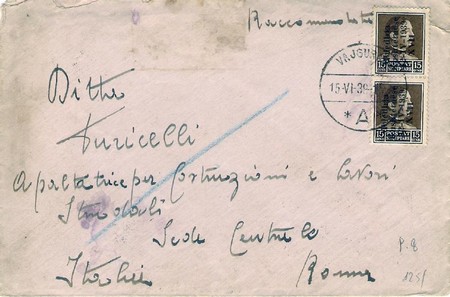 Raccomandata
VAJGUR
15-VI-39
* A
15 POSTAT SHQIPTARE 15
15 POSTAT SHQIPTARE 15
Ditta
Puricelli
Apaltatrice per Costruzioni e Lavori
Stradali
Sede Centrale
Italia Roma
P. 8
125/